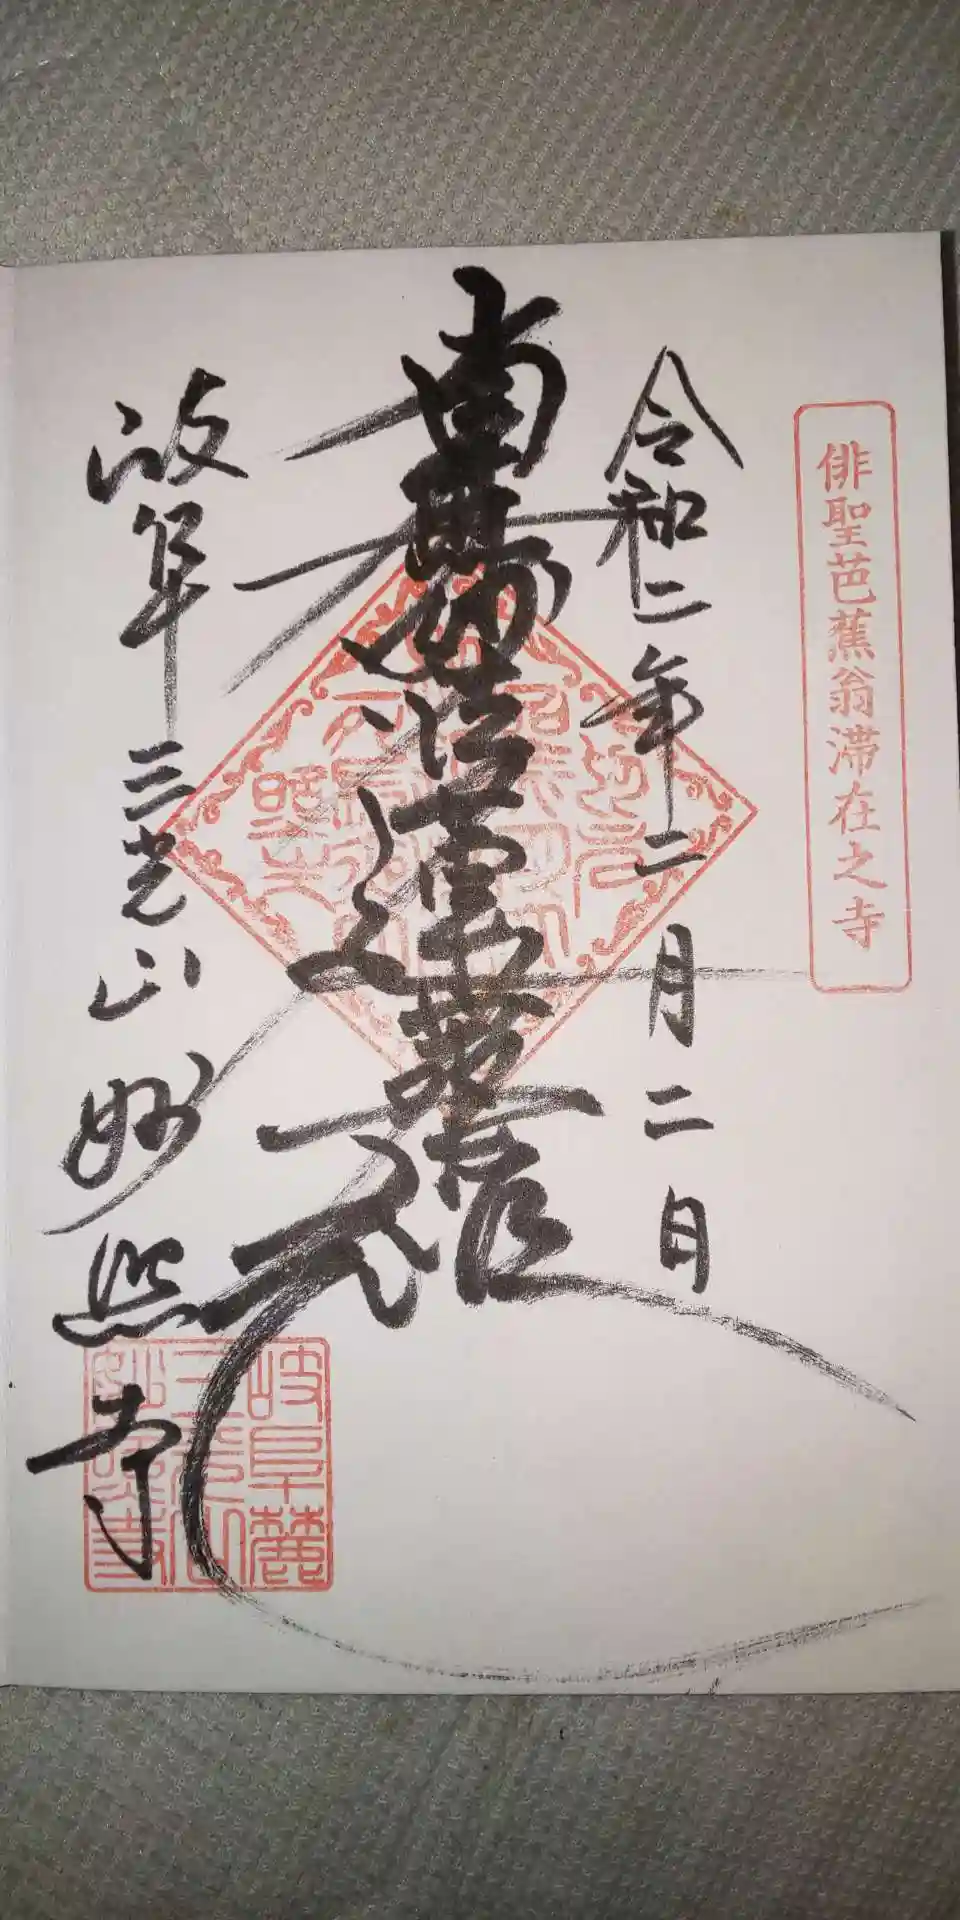 俳聖芭蕉翁滞在之寺
令和二年二月二日
南無妙法蓮華経
岐阜 三光山 妙照寺
岐阜麓
三光山
妙照寺